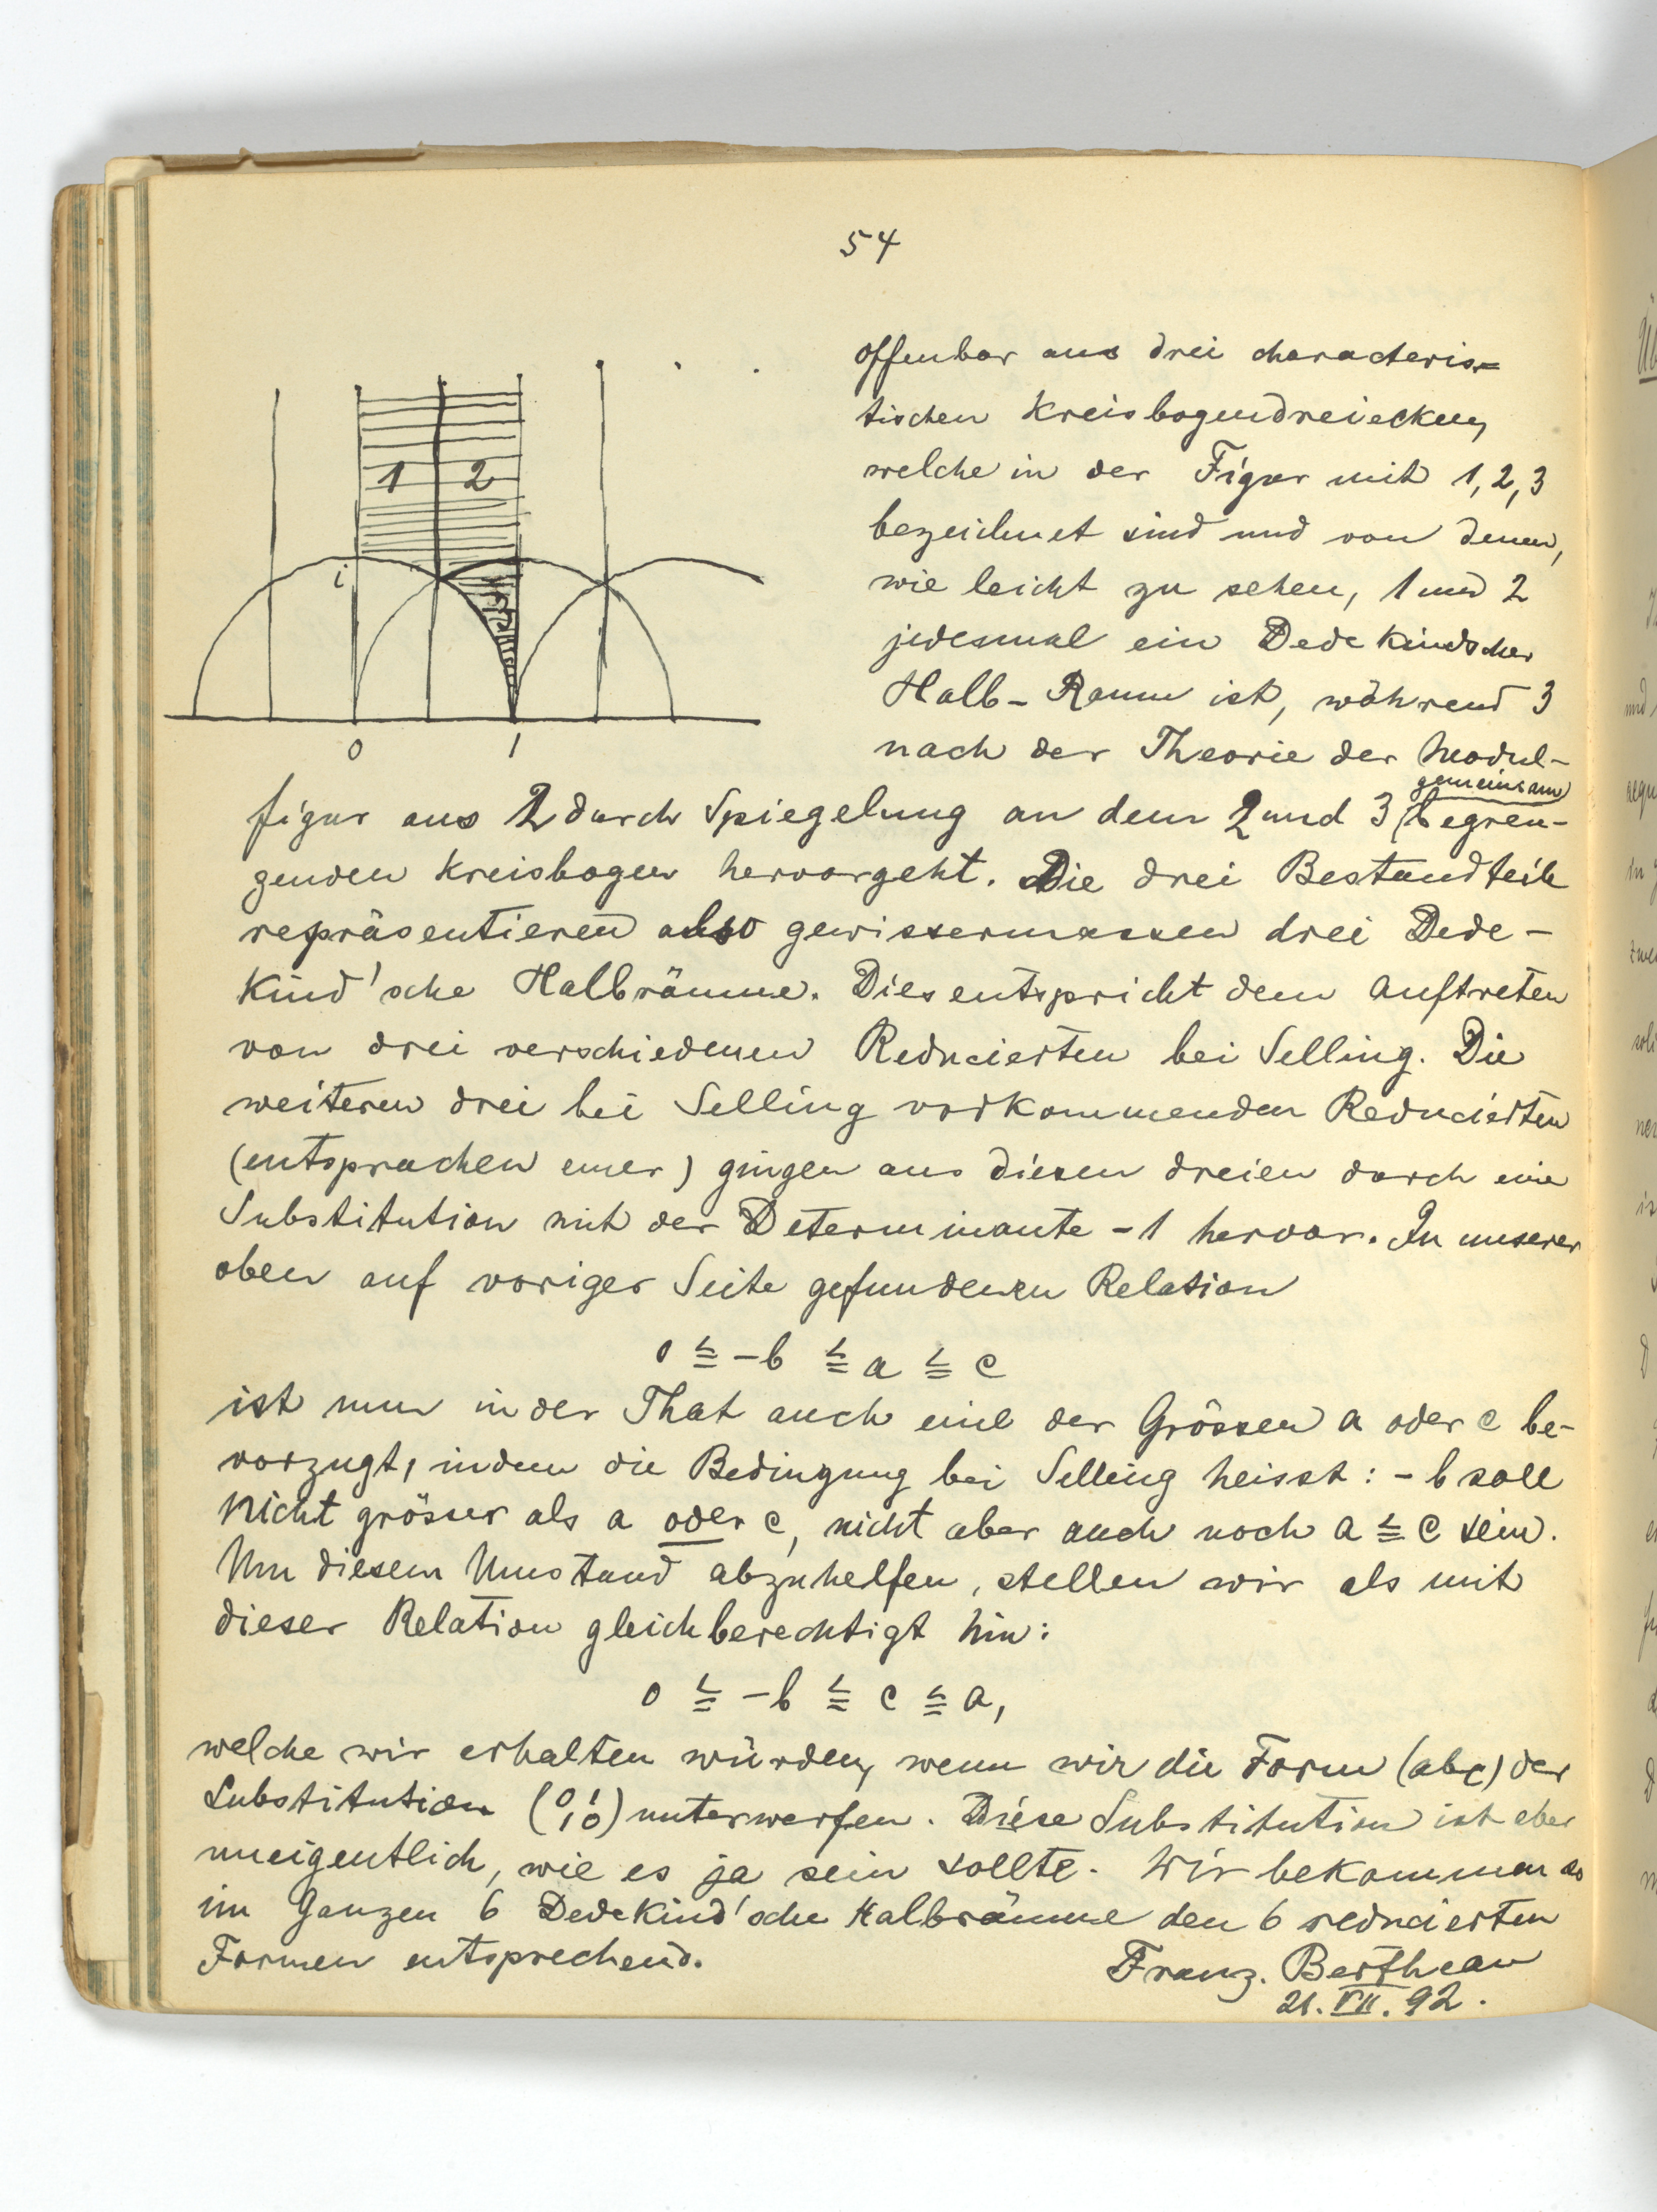 54
offenbar aus drei characteris=
tischen Kreisbogendreiecken,
welche in der Figur mit 1, 2, 3
bezeichnet sind und von denen,
wie leicht zu sehen, 1 und 2
jedesmal ein Dedekindscher
Halb-Raum ist, während 3
nach der Theorie der Modul-
1 2
i
0 1
gemeinsam
figur aus 2 durch Spiegelung an dem 2 und 3 begren-
zenden Kreisbogen hervorgeht. Die drei Bestandteile
repräsentieren also gewissermassen drei Dede-
kind'sche Halbräume. Dies entspricht dem Auftreten
von drei verschiedenen Reducierten bei Selling. Die
weiteren drei bei Selling vorkommenden Reducierten
(entsprachen einer) gingen aus diesen dreien durch eine
Substitution mit der Determinante -1 hervor. In unserer
oben auf voriger Seite gefundenen Relation
0 ≦ -b ≦ a ≦ c
ist nun in der That auch eine der Grössen a oder c be-
vorzugt, indem die Bedingung bei Selling heisst: -b soll
nicht grösser als a oder c, nicht aber auch noch a ≦ c sein.
Um diesem Umstand abzuhelfen, stellen wir als mit
dieser Relation gleichberechtigt hin:
0 ≦ -b ≦ c ≦ a,
welche wir erhalten würden, wenn wir die Form (abc) der
Substitution (0 1 1 0) unterwerfen. Diese Substitution ist aber
uneigentlich, wie es ja sein sollte. Wir bekommen so
im Ganzen 6 Dedekind'sche Halbräume den 6 reducierten
Formen entsprechend.
Franz. Bertheau
21. VII. 92.